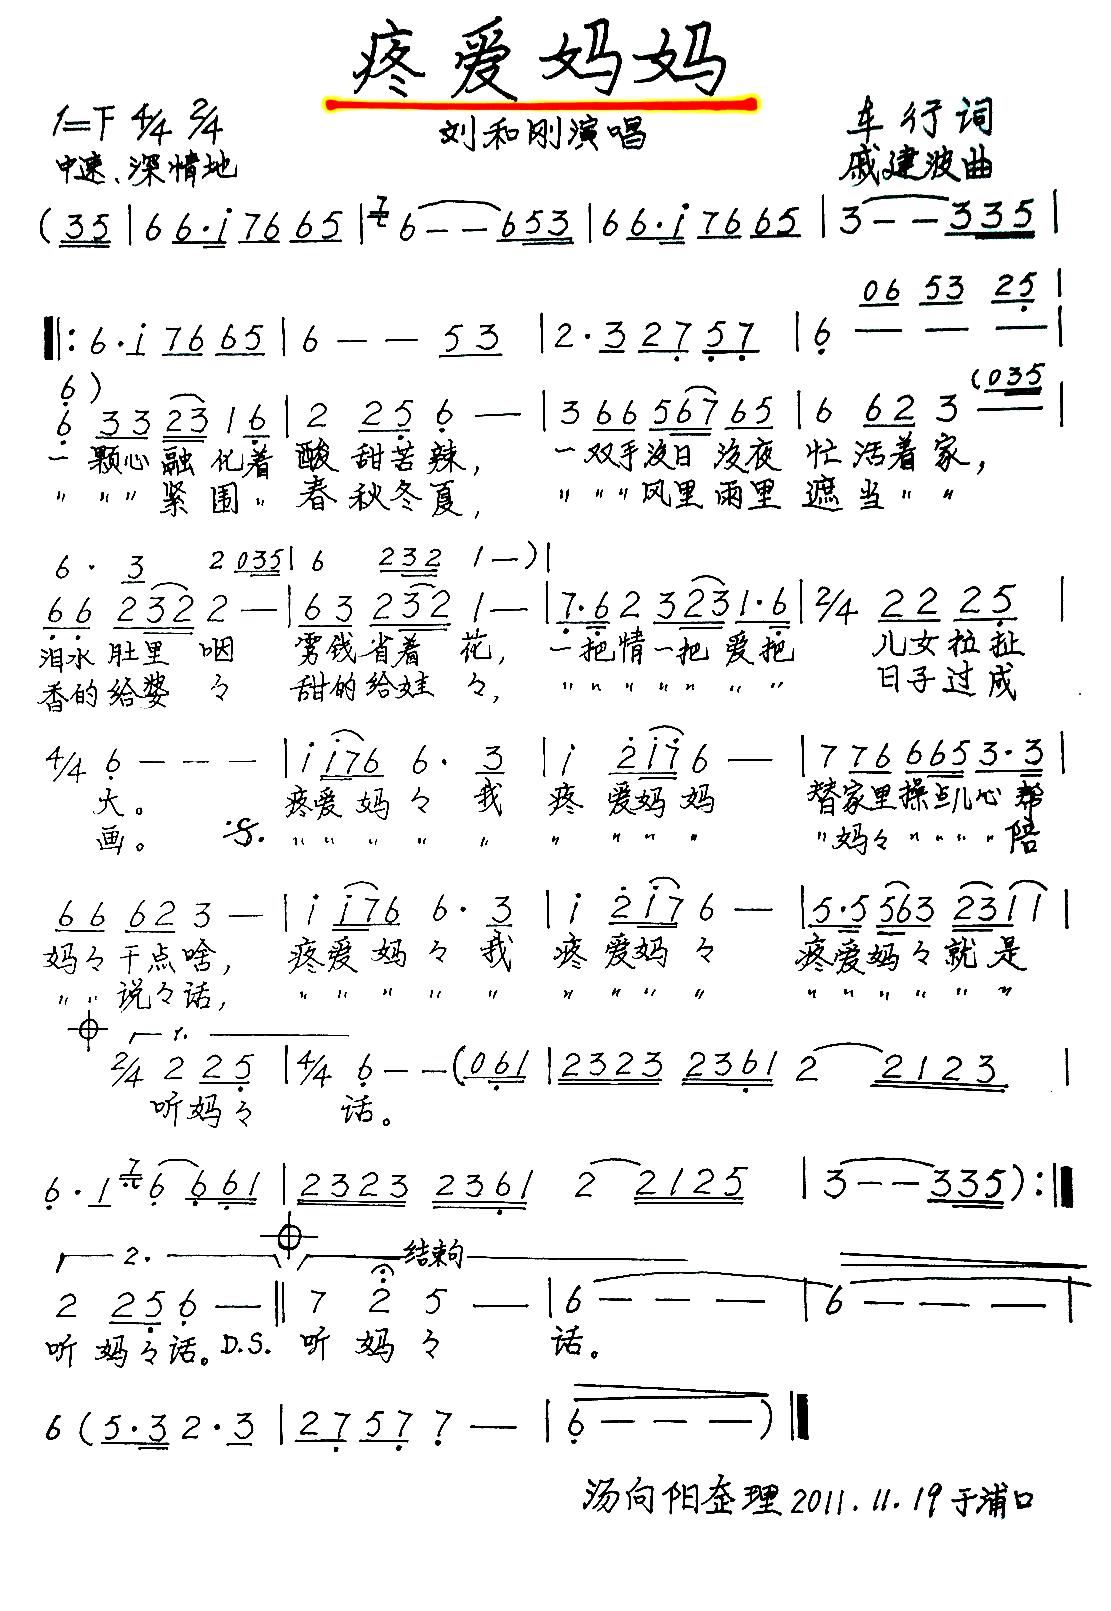 疼爱妈妈
1=F 4/4 2/4
刘和刚演唱
车行词
中速、深情地
戚建波曲
(35 | 66·i 7665 | 6 - - 653 | 66·i 7665 | 3 - - 335 |
06 53 25 |
‖: 6·i 7665 | 6 - - 53 | 2·3 27 57 | 6 - - - |
6) (035
6 33 23 16 | 2 25 6 - | 3 66 567 65 | 6 62 3 - |
一颗心融化着酸甜苦辣, 一双手没日没夜忙活着家,
〃〃〃紧围〃春秋冬夏, 〃〃〃风里雨里遮当〃〃
6· 3 2 035 | 6 232 1 - ) |
66 232 2 - | 63 232 1 - | 7·6 2 323 1·6 | 2/4 22 25 |
泪水肚里咽 雾钱省着花, 一把情一把爱把 儿女拉扯
香的给婆々 甜的给娃々, 〃〃〃〃〃〃〃 日子过成
4/4 6 - - - | i i76 6· 3 | i 2i7 6 - | 7 776 665 3·3 |
大。 疼爱妈々我 疼爱妈妈 替家里操点儿心帮
画。 :S. 〃〃〃〃〃 〃〃〃〃 〃妈々〃〃〃〃陪
66 62 3 - | i i76 6· 3 | i 2i7 6 - | 5·5 563 23 11 |
妈々干点啥, 疼爱妈々我 疼爱妈々 疼爱妈々就是
〃〃说々话, 〃〃〃〃〃 〃〃〃〃 〃〃〃〃〃〃
1.
2/4 2 25 | 4/4 6 - - (061 | 2323 2361 2 2123 |
听妈々 话。
6·1 6 661 | 2323 2361 2 2125 | 3 - - 335) :‖
2. 结束句
2 25 6 - ‖ 7 2 5 - | 6 - - - | 6 - - - |
听妈々话。D.S. 听妈々 话。
6 (5·3 2·3 | 27 57 7 - | 6 - - - ) ‖
汤向阳整理 2011.11.19于浦口